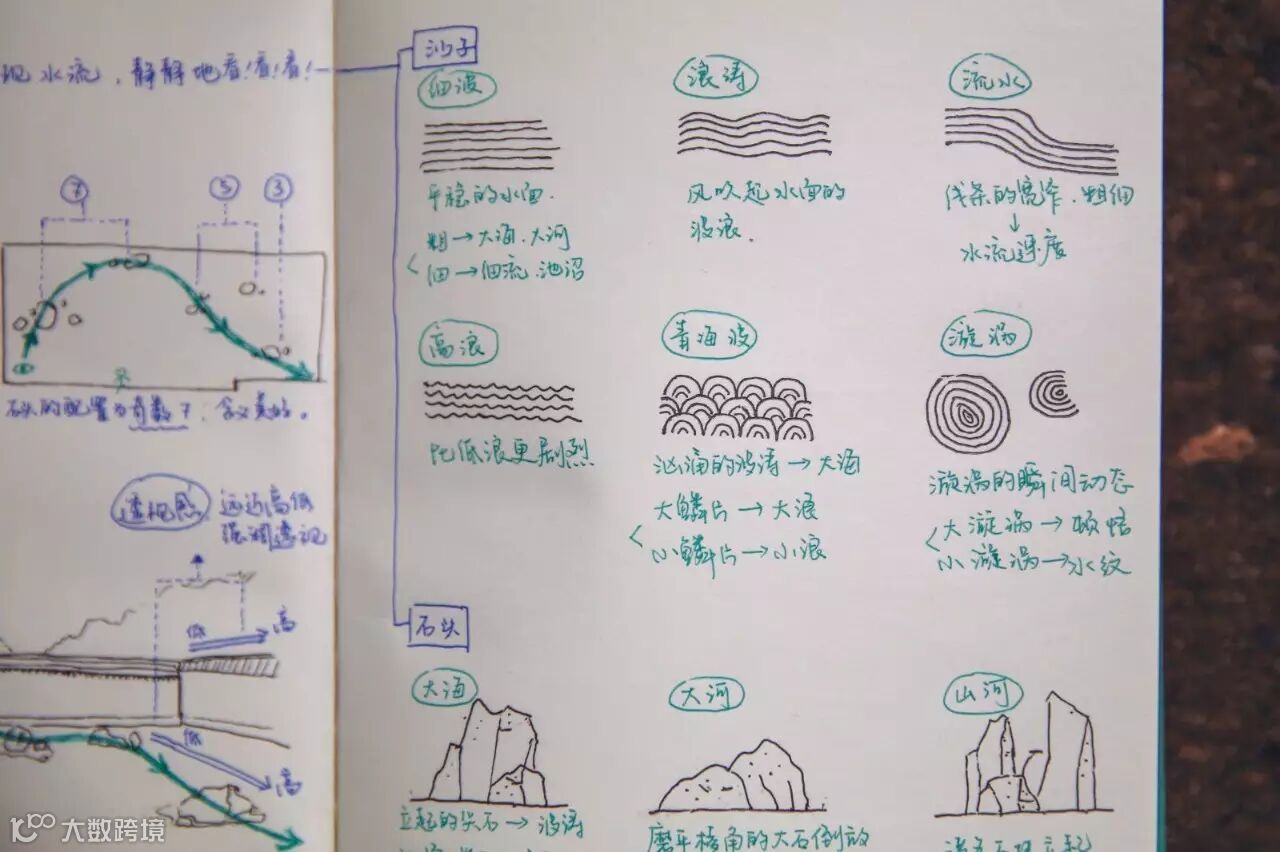 现水流，静静地看！看！看！
⑦ ⑤ ③
石头的配置为奇数7，含义美好。
透视感 远近高低
强调透视
低 高
低 高
沙子
细波
平稳的水面.
粗→大海.大河
细→细流.池沼
浪涛
风吹起水面的
波浪.
流水
线条的宽窄.粗细
↓
水流速度
高浪
比低浪更剧烈
青海波
汹涌的波涛→大海
大鳞片→大浪
小鳞片→小浪
漩涡
漩涡的瞬间动态
大漩涡→
小漩涡→水纹
石头
大海
立起的尖石→波涛
大河
磨平棱角的大石倒放
山河
大数跨境